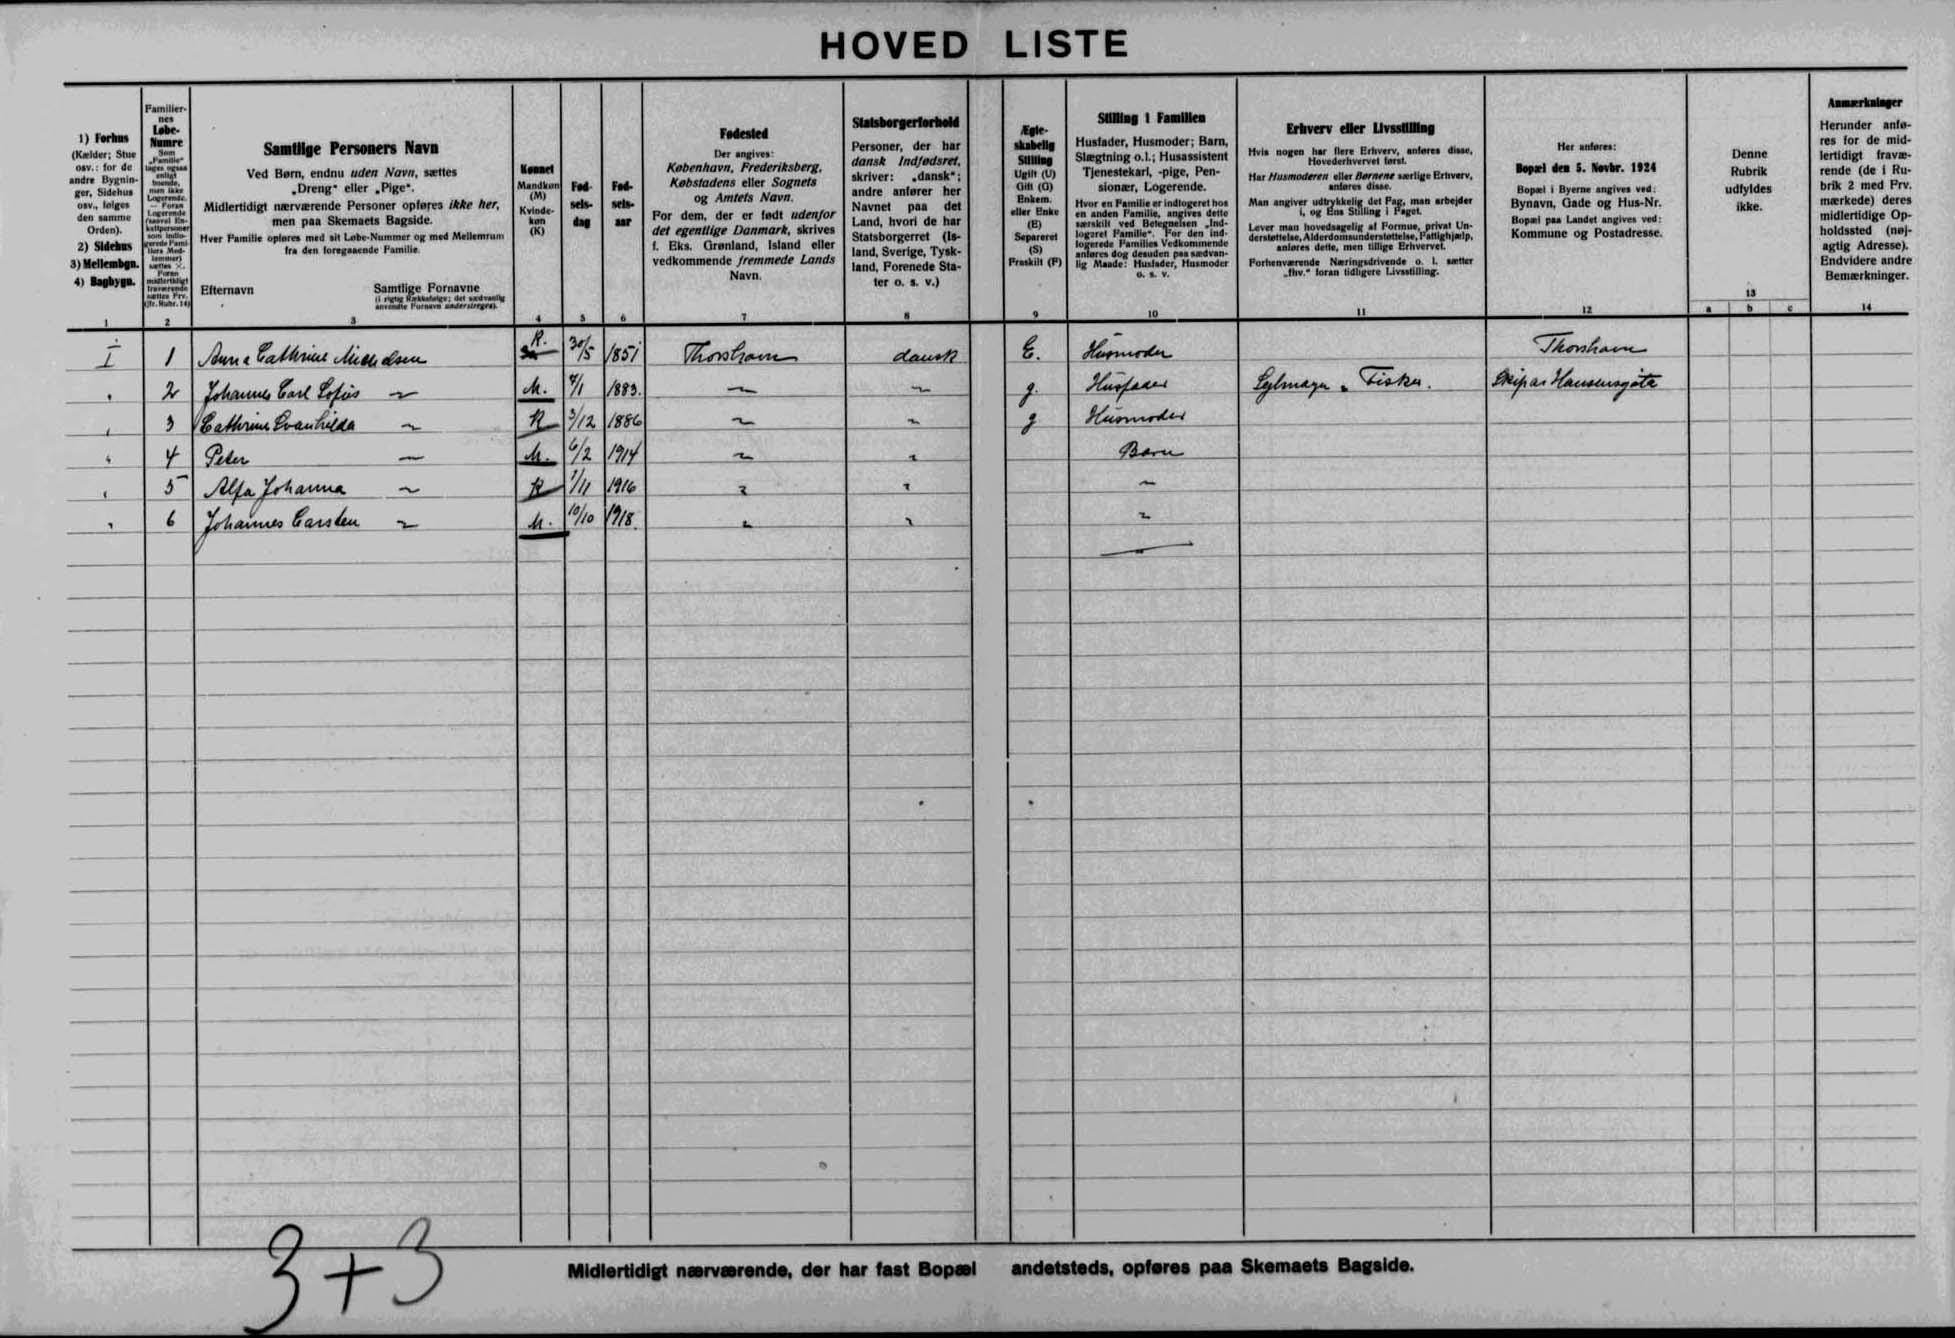 HOVED LISTE
1) Forhus
(Kælder; Stue
osv.: for de
andre Bygnin-
ger, Sidehus
osv., følges
den samme
Orden).
2) Sidehus
3) Mellembgn.
4) Bagbygn.
1
Familier-
nes
Løbe-
Numre
Som
„Familie“
tages ogsaa
enligt
boende,
men ikke
Logerende.
— Foran
Logerende
(saavel En-
keltpersoner
som indlo-
gerede Fami-
liers Med-
lemmer)
sættes ×.
Foran
midlertidigt
fraværende
sættes Frv.
(jfr. Rubr. 14)
2
Samtlige Personers Navn
Ved Børn, endnu uden Navn, sættes
„Dreng“ eller „Pige“.
Midlertidigt nærværende Personer opføres ikke her,
men paa Skemaets Bagside.
Hver Familie opføres med sit Løbe-Nummer og med Mellemrum
fra den foregaaende Familie.
Efternavn Samtlige Fornavne
(i rigtig Rækkefølge; det sædvanlig
anvendte Fornavn understreges).
3
Kønnet
Mandkøn
(M)
Kvinde-
køn
(K)
4
Fød-
sels-
dag
5
Fød-
sels-
aar
6
Fødested
Der angives:
København, Frederiksberg,
Købstadens eller Sognets
og Amtets Navn.
For dem, der er født udenfor
det egentlige Danmark, skrives
f. Eks. Grønland, Island eller
vedkommende fremmede Lands
Navn.
7
Statsborgerforhold
Personer, der har
dansk Indfødsret,
skriver: „dansk“;
andre anfører her
Navnet paa det
Land, hvori de har
Statsborgerret (Is-
land, Sverige, Tysk-
land, Forenede Sta-
ter o. s. v.)
8
Ægte-
skabelig
Stilling
Ugift (U)
Gift (G)
Enkem.
eller Enke
(E)
Separeret
(S)
Fraskilt (F)
9
Stilling i Familien
Husfader, Husmoder; Barn,
Slægtning o.l.; Husassistent
Tjenestekarl, -pige, Pen-
sionær, Logerende.
Hvor en Familie er indlogeret hos
en anden Familie, angives dette
særskilt ved Betegnelsen „Ind-
logeret Familie“. For den ind-
logerede Families Vedkommende
anføres dog desuden paa sædvan-
lig Maade: Husfader, Husmoder
o. s. v.
10
Erhverv eller Livsstilling
Hvis nogen har flere Erhverv, anføres disse,
Hovederhvervet først.
Har Husmoderen eller Børnene særlige Erhverv,
anføres disse.
Man angiver udtrykkelig det Fag, man arbejder
i, og Ens Stilling i Faget.
Lever man hovedsagelig af Formue, privat Un-
derstøttelse, Alderdomsunderstøttelse, Fattighjælp,
anføres dette, men tillige Erhvervet.
Forhenværende Næringsdrivende o. l. sætter
„fhv.“ foran tidligere Livsstilling.
11
Her anføres:
Bopæl den 5. Novbr. 1924
Bopæl i Byerne angives ved:
Bynavn, Gade og Hus-Nr.
Bopæl paa Landet angives ved:
Kommune og Postadresse.
12
Denne
Rubrik
udfyldes
ikke.
13
a b c
Anmærkninger
Herunder anfø-
res for de mid-
lertidigt fravæ-
rende (de i Ru-
brik 2 med Frv.
mærkede) deres
midlertidige Op-
holdssted (nøj-
agtig Adresse).
Endvidere andre
Bemærkninger.
14
I 1 Anna Cathrine Michelsen K. 30/5 1851 Thorshavn dansk E. Husmoder Thorshavn
" 2 Johannes Carl Sofus ~ M. 4/1 1883. ~ ~ g. Husfader Sejlmager, Fisker. Skipar Hansensgøta
" 3 Cathrine Svanhilda ~ K 3/12 1886 ~ ~ g Husmoder
" 4 Peter ~ M. 6/2 1914 ~ ~ Barn
" 5 Alfa Johanna ~ K 1/11 1916 ~ ~ ~
" 6 Johannes Carsten ~ M. 10/10 1918. ~ ~ ~
3+3
Midlertidigt nærværende, der har fast Bopæl andetsteds, opføres paa Skemaets Bagside.